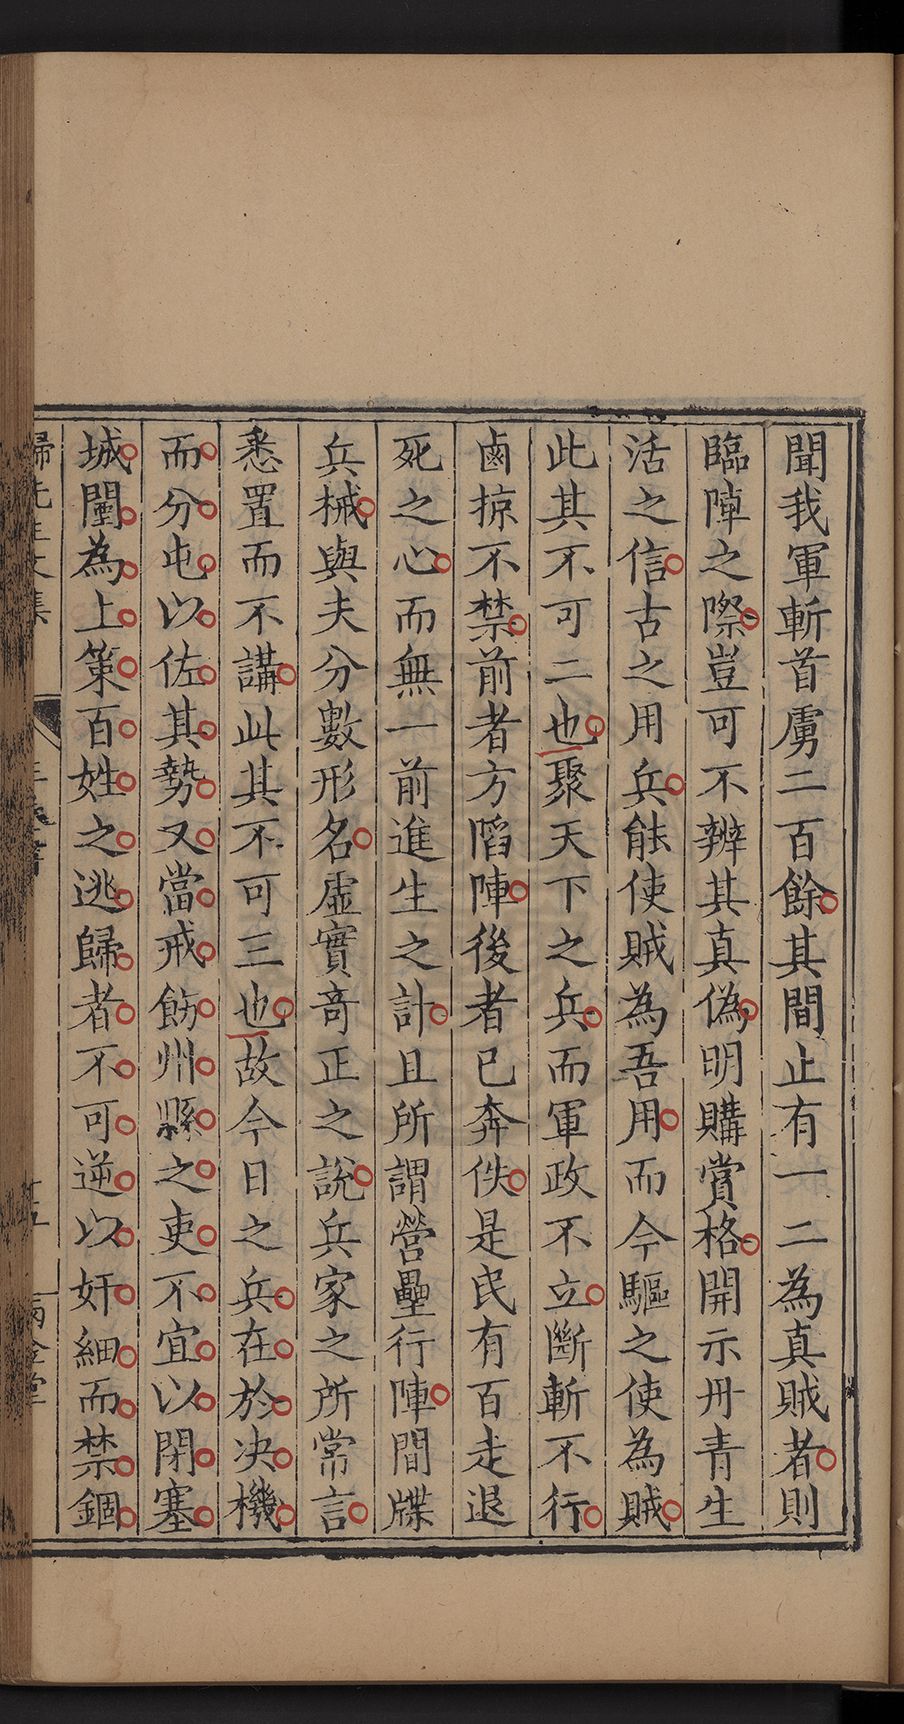 聞我軍斬首虜二百餘其間止有一二為真賊者則
臨陣之際豈可不辨其真偽明購賞格開示丹青生
活之信古之用兵能使賊為吾用而今驅之使為賊
此其不可二也聚天下之兵而軍政不立斷斬不行
鹵掠不禁前者方䧟陣後者已奔佚是民有百走退
死之心而無一前進生之計且所謂營壘行陣間牒
兵械與夫分數形名虛實竒正之說兵家之所常言
悉置而不講此其不可三也故今日之兵在於决機
而分屯以佐其勢又當戒飭州縣之吏不宜以閉塞
城闉為上策百姓之逃歸者不可逆以奸細而禁錮